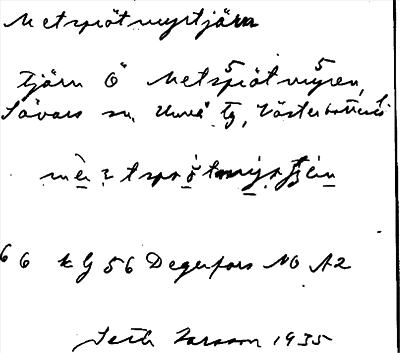 Metspröt myrtjärn
tjärn Ö Metspröt myren,
Sävars sn, Umeå tg, Västerbottens
66 KG 56 Degerfors NO A2
Seth Larsson 1935